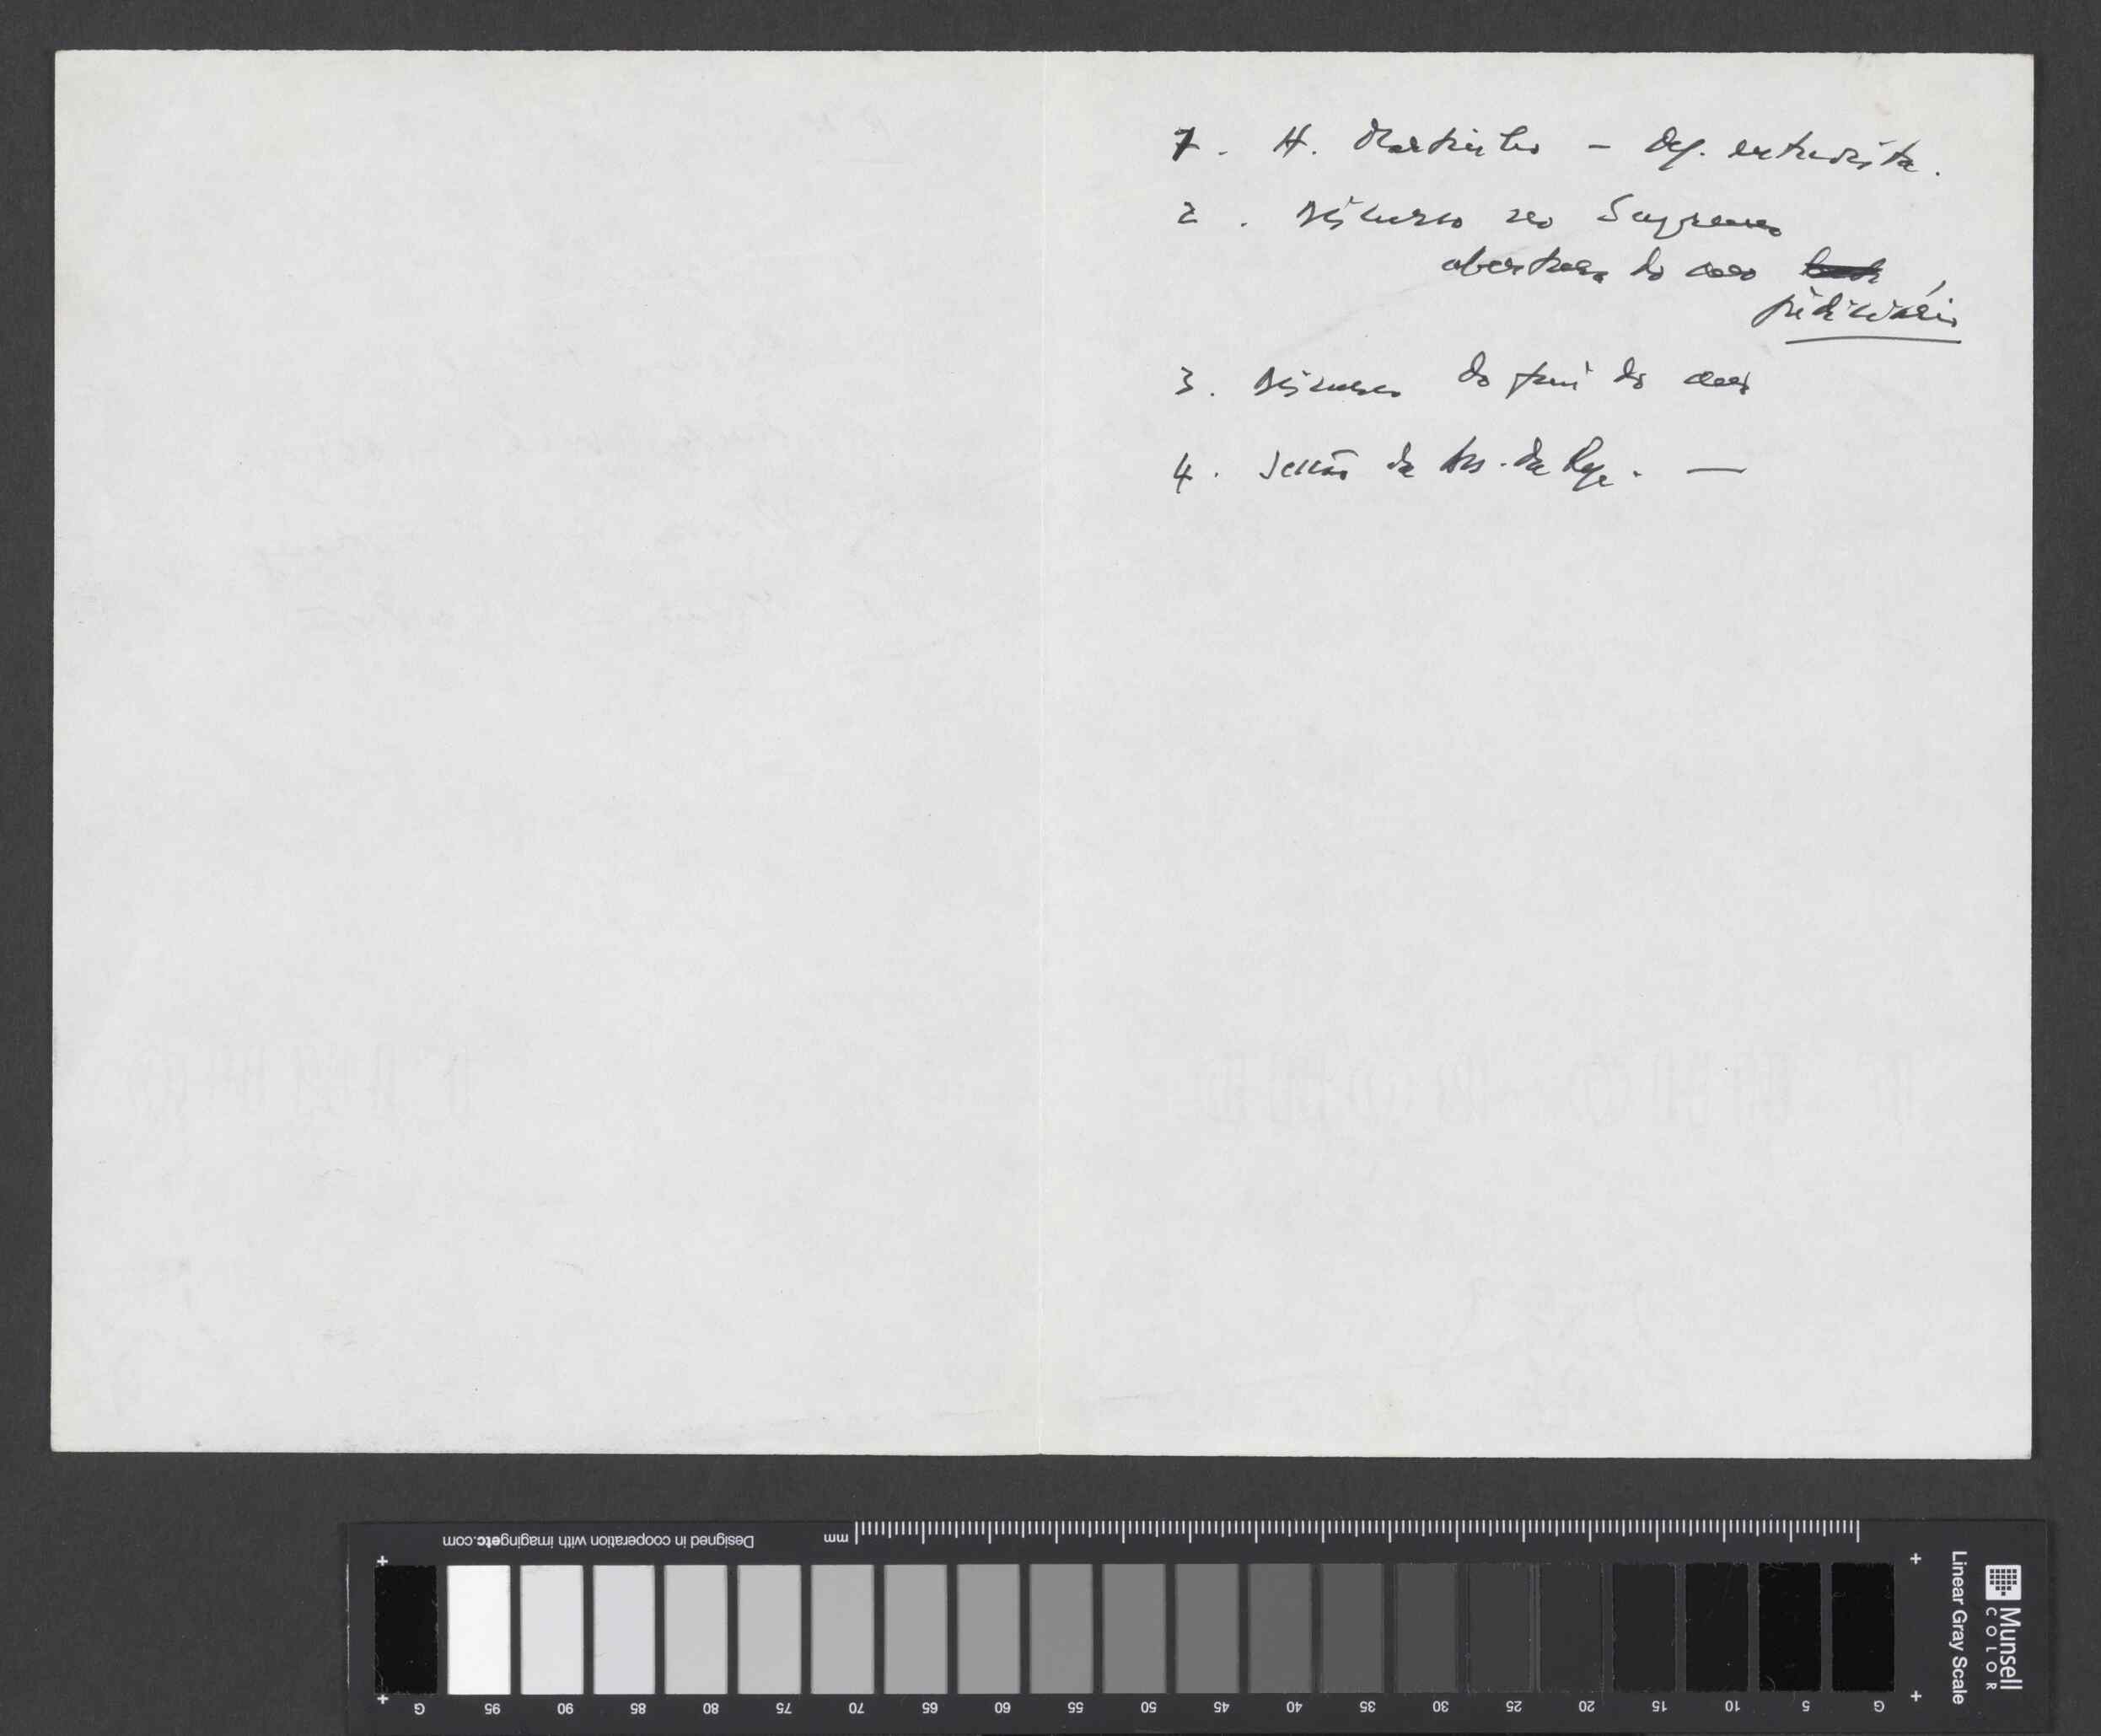 1. H. Martinho - Dep. entrevista.
2. Discurso no Supremo
abertura do ano
judiciário
3. Discurso do fim do ano
4. Sessão da Ass. da Rep. —
Designed in cooperation with imagingetc.com
mm
G 95 90 85 80 75 70 65 60 55 50 45 40 35 30 25 20 15 10 5 G
Linear Gray Scale
Munsell
COLOR